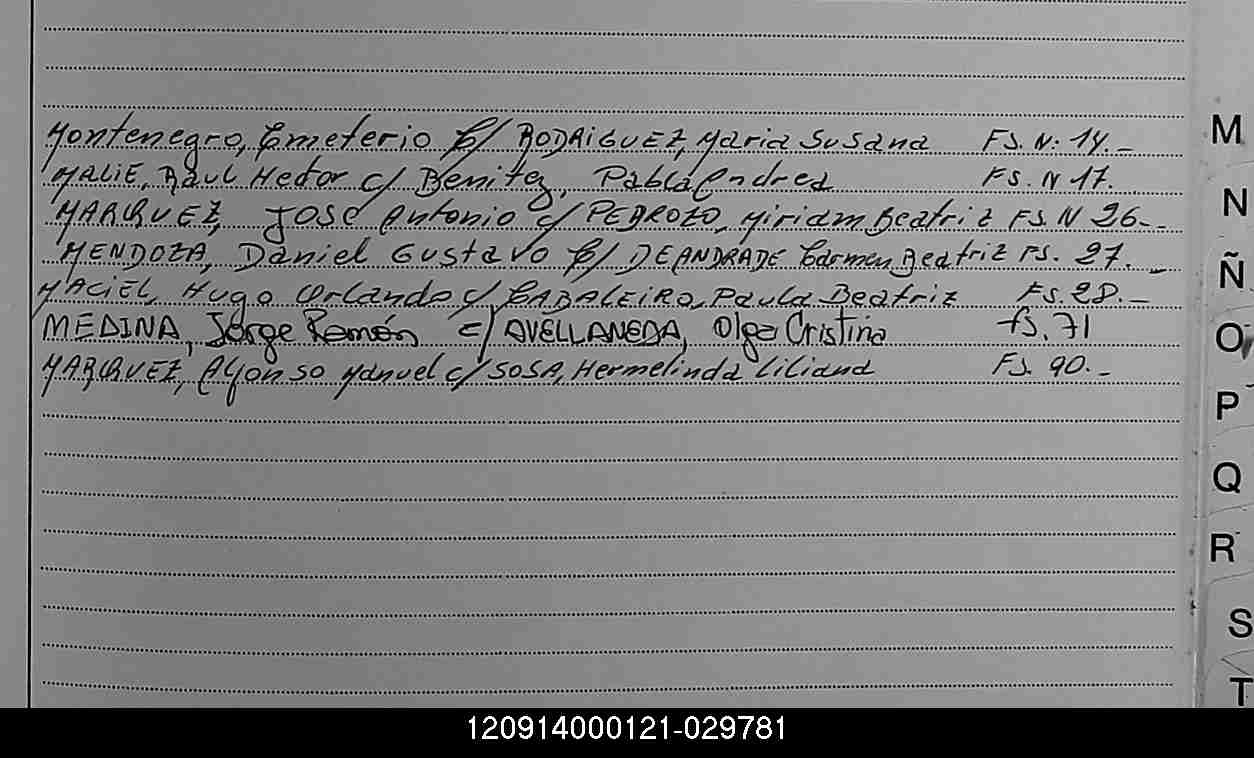 Montenegro, Emeterio C/ RODRIGUEZ, Maria Susana FS. N: 14.-
MALIE, Raul Hector c/ Benitez, Pabla Andrea FS. N 17.
MARQUEZ, José Antonio c/ PEDROZO, Miriam Beatriz FS. N 26.-
MENDOZA, Daniel Gustavo C/ DEANDRADE Carmen Beatriz FS. 27.-
MACIEL, Hugo Orlando c/ CABALEIRO, Paula Beatriz FS. 28.-
MEDINA, Jorge Ramón c/ AVELLANEDA, Olga Cristina fs. 71
MARQUEZ, Alfonso Manuel c/ SOSA, Hermelinda Liliana FS. 90.-
M
N
Ñ
O
P
Q
R
S
T
120914000121-029781